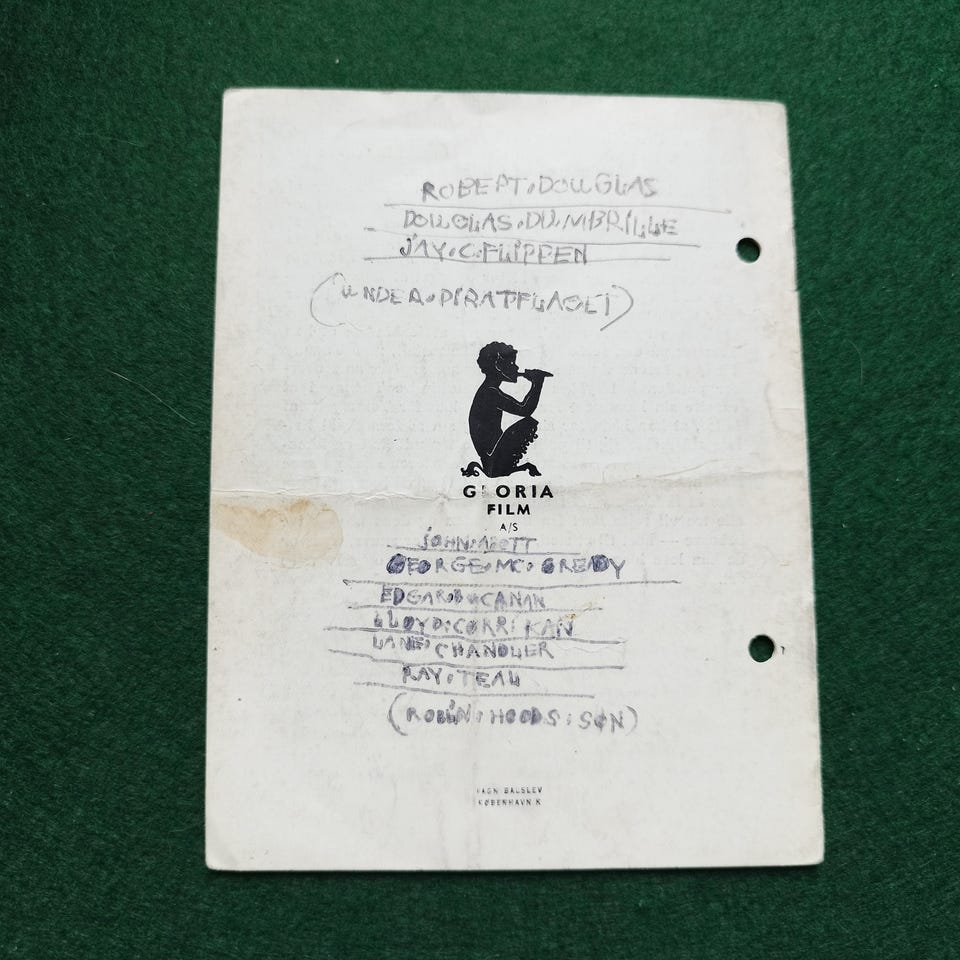 ROBERT. DOUGLAS
DOUGLAS. DUMBRILLE
JAY. C. FLIPPEN
(UNDER. PIRATFLAGET)
GLORIA
FILM
A/S
JOHN. ABOTT
GEORGE. MC. GREADY
EDGAR. BUCANAN
LLOYD. CORRIKAN
LANE. CHANDLER
RAY. TEAL
(ROBIN. HOODS. SØN)
VAGN BALSLEV
KØBENHAVN K